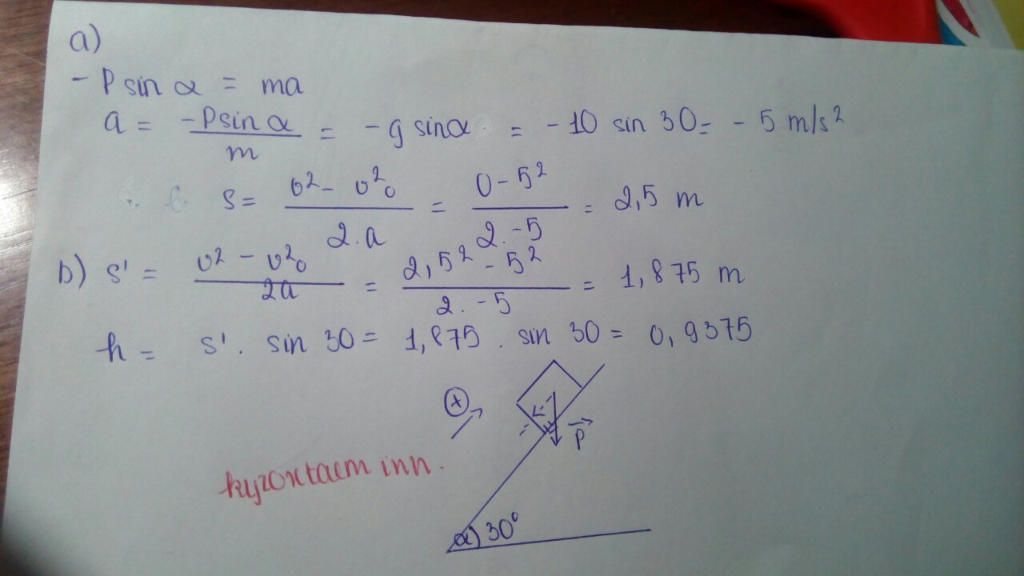 a)
- P sin α = ma
a = -P sin α / m = -g sin α = -10 sin 30 = -5 m/s²
s = v² - v²₀ / 2.a = 0 - 5² / 2.-5 = 2,5 m
b) s' = v² - v²₀ / 2a = 2,5² - 5² / 2.-5 = 1,875 m
h = s' . sin 30 = 1,875 . sin 30 = 0,9375
+
P
α) 30°